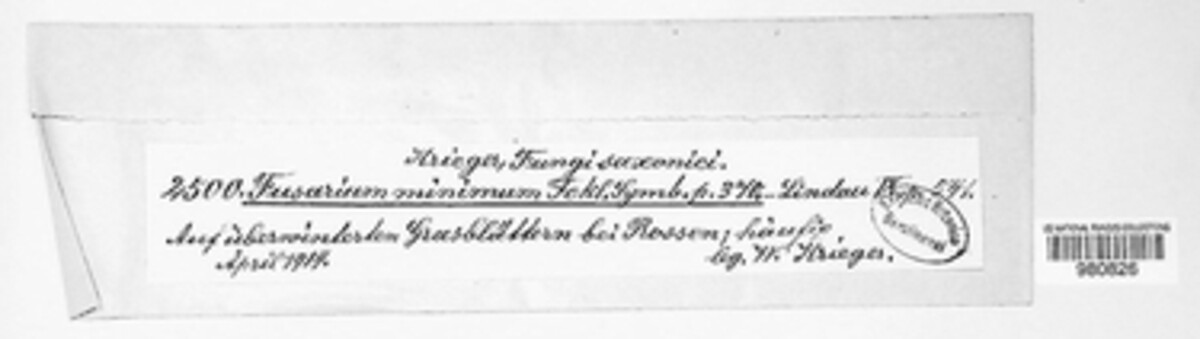 Krieger, Fungi saxonici.
2500. Fusarium minimum Fckl. Symb. p. 370. Lindau
Auf überwinterten Grasblättern bei Rossen, häufig
April 1914. lig. W. Krieger.
980826